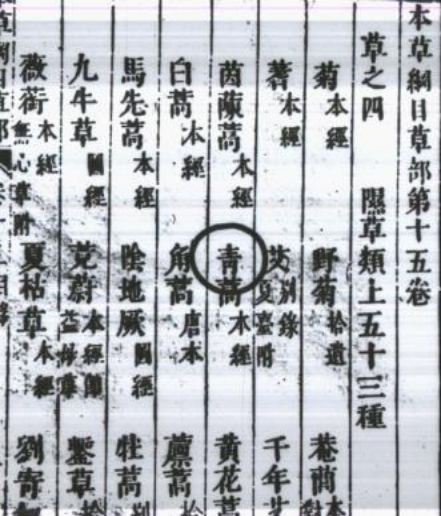 本草綱目草部第十五卷
草之四 隰草類上五十三種
菊 本經 野菊 拾遺 菴
蓍 本經 艾 別錄 夏臺附 千年艾
茵蔯蒿 本經 青蒿 本經 黃花蒿
白蒿 本經 角蒿 唐本 藘蒿 拾
馬先蒿 本經 陰地厥 圖經 牡蒿 別
九牛草 圖經 茺蔚 本經 鏨 拾
薇銜 本經 無心草附 夏枯草 本經 劉寄